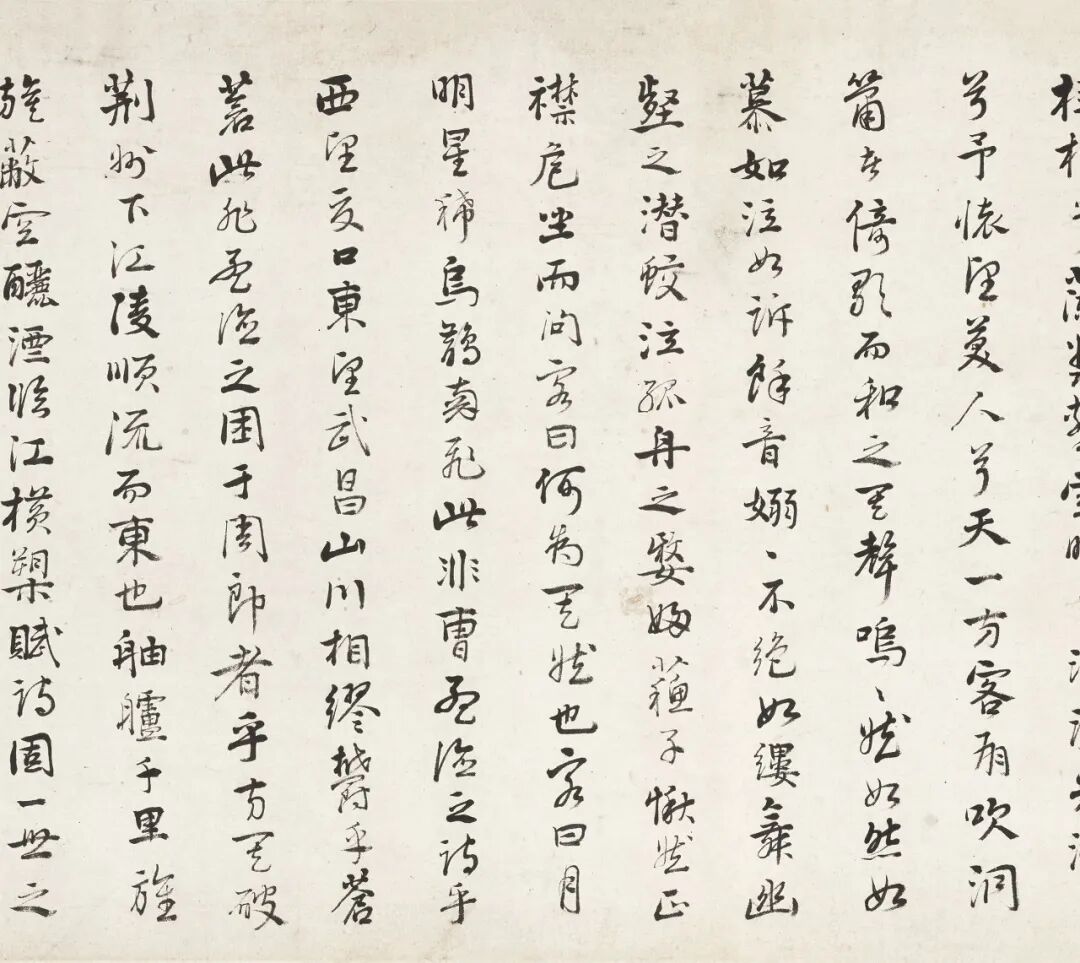 蘭槳擊空明
兮予懷望美人兮天一方客有吹洞
簫者倚歌而和之其聲嗚〻然如怨如
慕如泣如訴餘音嫋〻不絕如縷舞幽
壑之潛蛟泣孤舟之嫠婦蘓子愀然正
襟危坐而問客曰何為其然也客曰月
明星稀烏鵲南飛此非曹孟德之詩乎
西望夏口東望武昌山川相繆鬱乎蒼
蒼此非孟德之困于周郎者乎方其破
荊州下江陵順流而東也舳艫千里旌
旗蔽空釃酒臨江橫槊賦詩固一世之